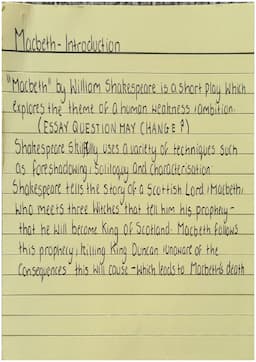 Macbeth - Introduction
"Macbeth" by William Shakespeare is a short play which
explores the theme of a human weakness ; ambition.
(ESSAY QUESTION MAY CHANGE ?)
Shakespeare skilfully uses a variety of techniques such
as foreshadowing, Soliloquy and characterisation.
Shakespeare tells the story of a Scottish Lord, Macbeth,
who meets three Witches that tell him his prophecy -
that he will become King of Scotland. Macbeth follows
this prophecy, killing King Duncan unaware of the
Consequences this will cause - which leads to Macbeth's death